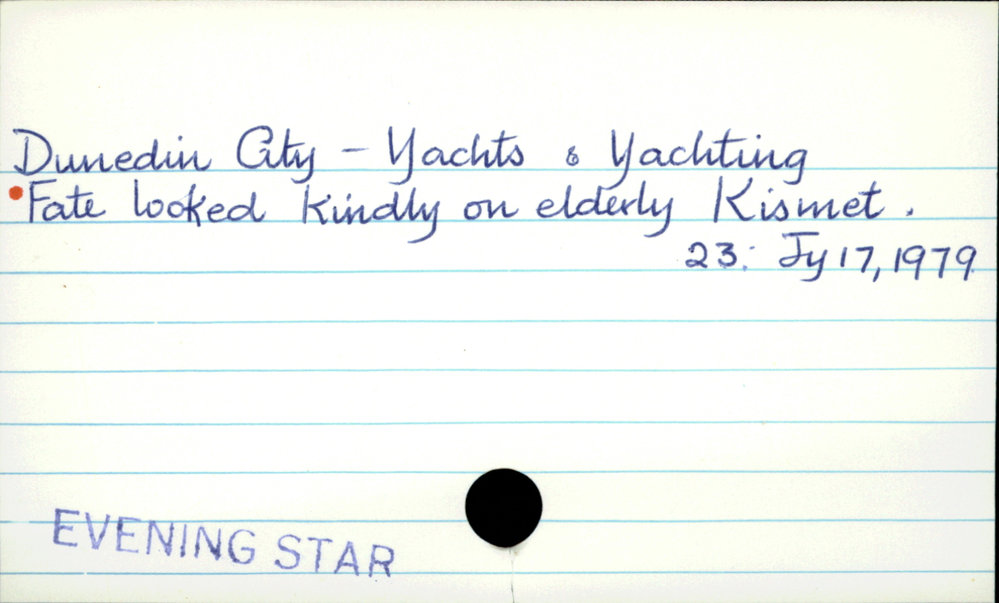 Dunedin City - Yachts & Yachting
Fate looked kindly on elderly Kismet.
23: Jy 17, 1979
EVENING STAR